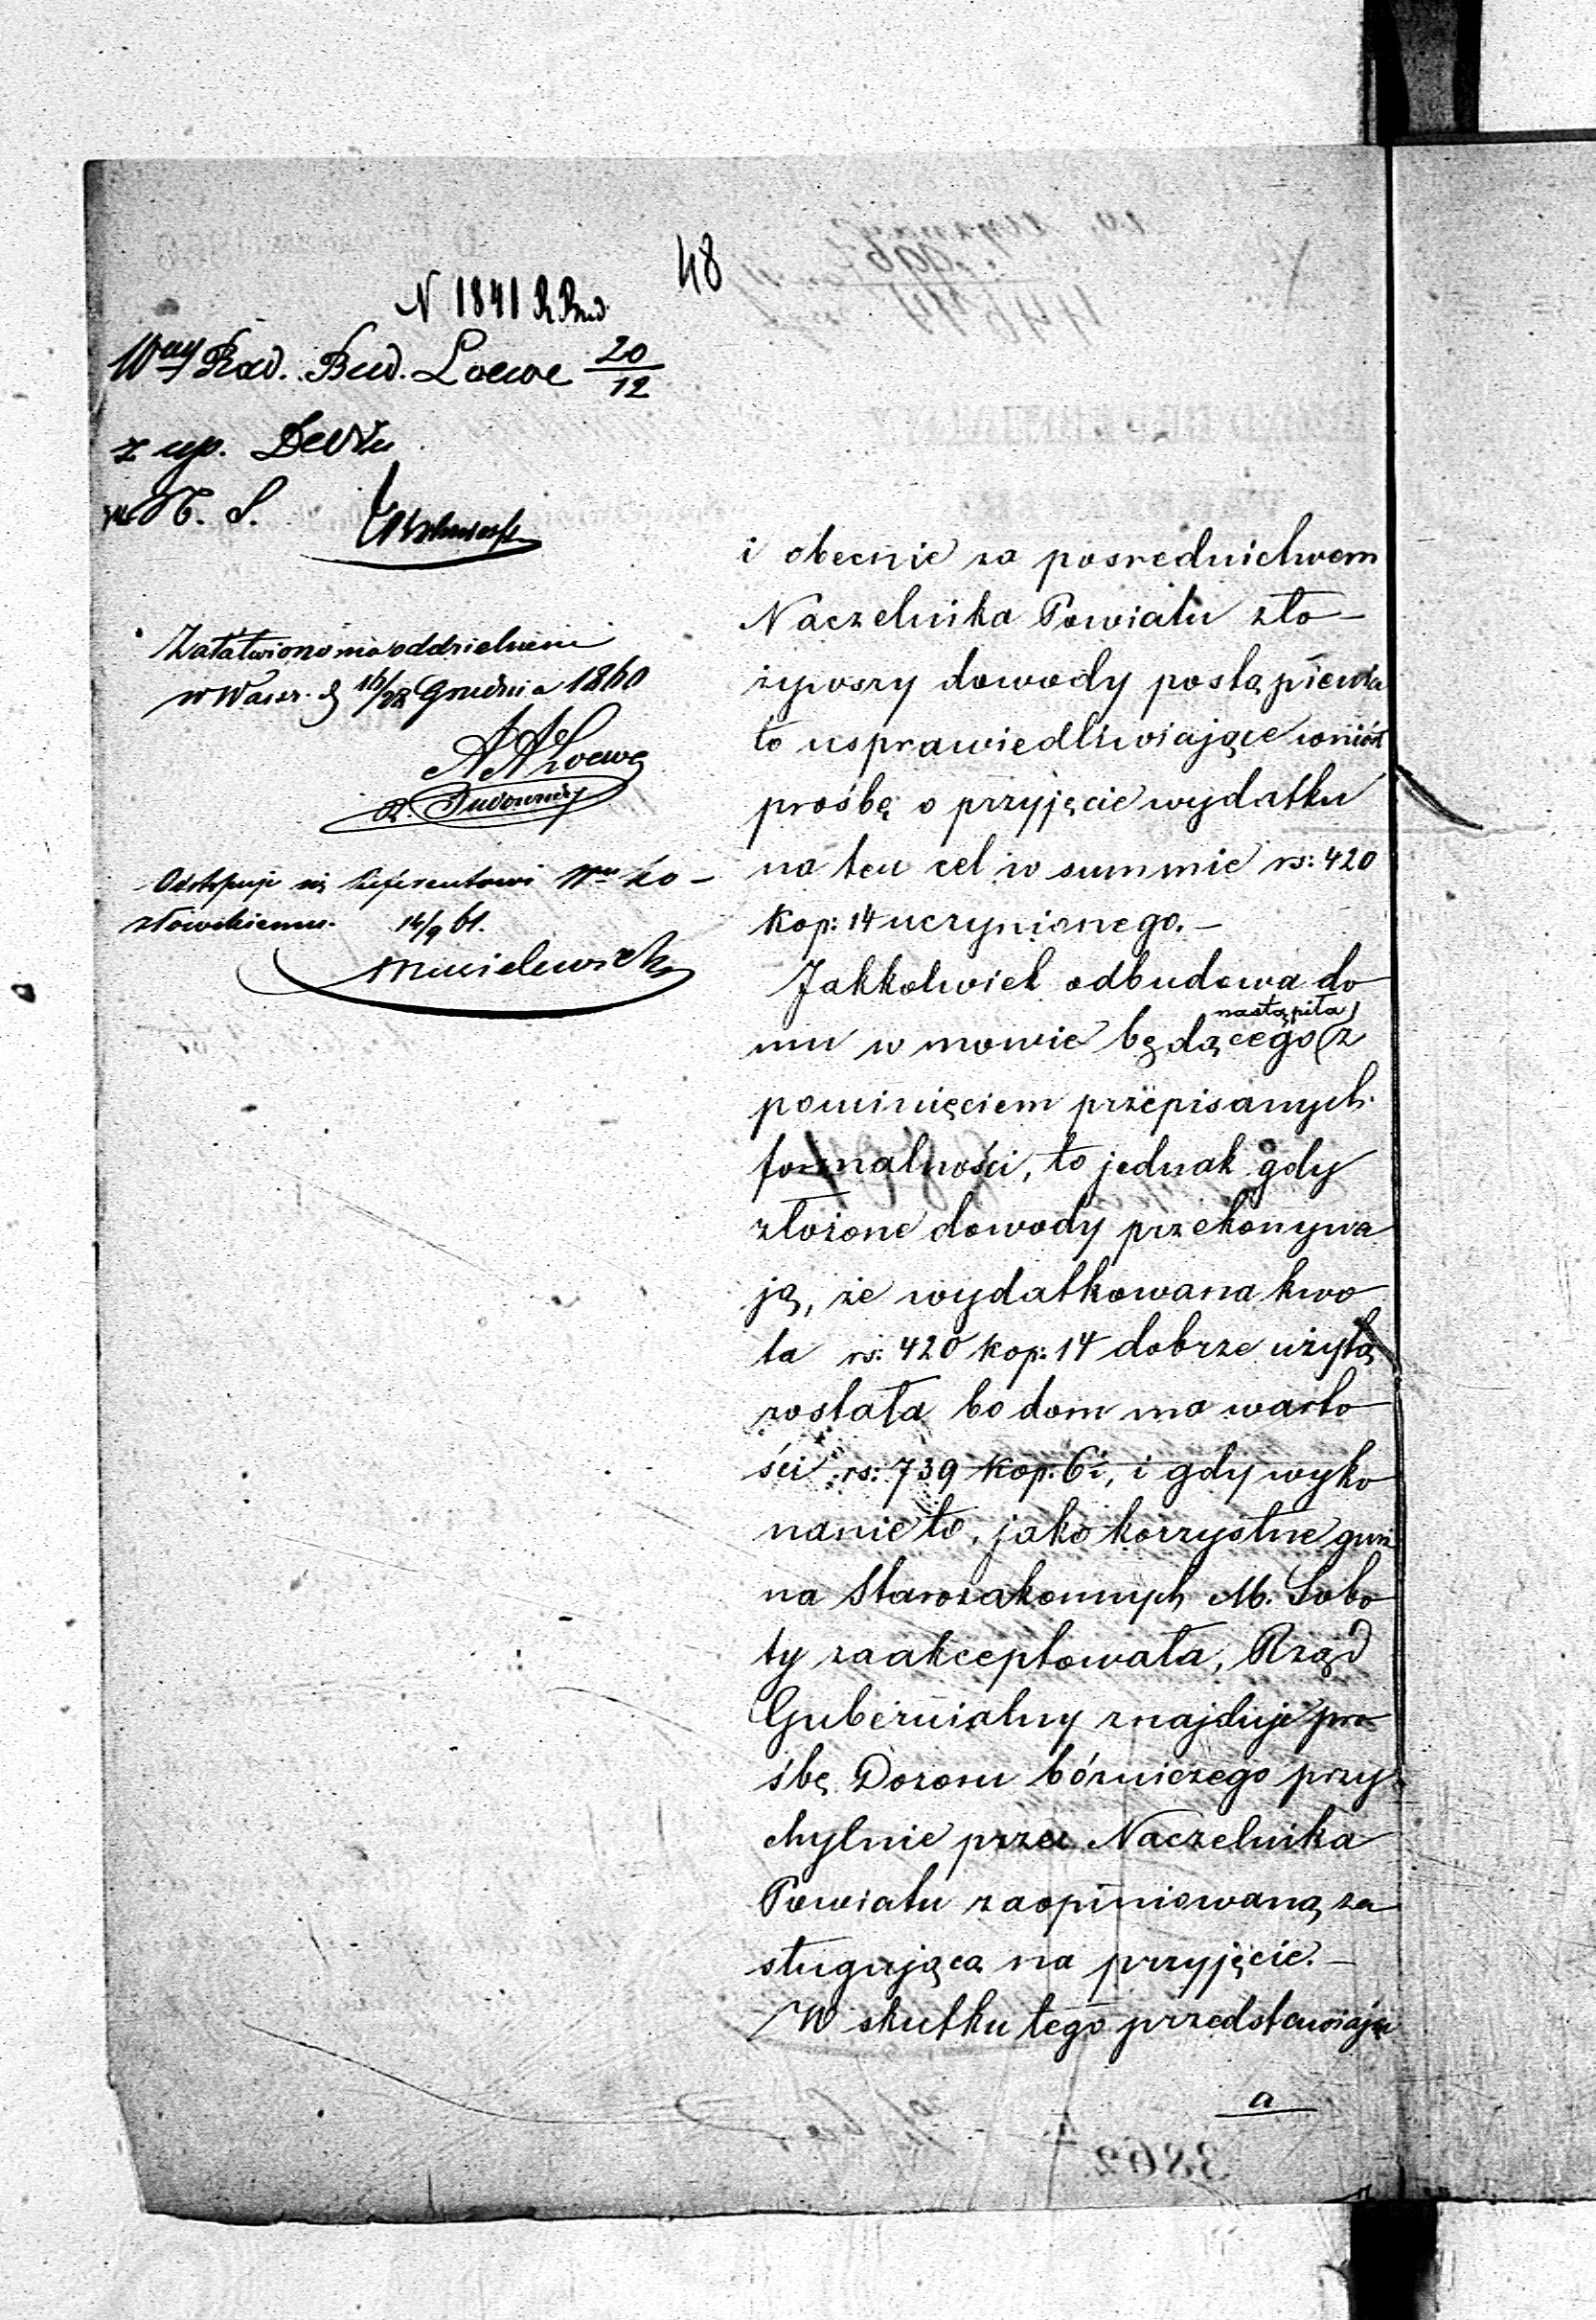 48
N 1841 R Bud.
Wny Rad. Bud. Loewe 20/12
z up. Devtu
N. S.
Załatwiono na oddzielnem
w Warsz. d 16/28 Grudnia 1860
AALoewe
R. Budowniczy
Odstępuje się Referentowi Wmu Ko-
złowskiemu. 14/9 61.
i obecnie za pośrednictwem
Naczelnika Powiatu zło-
żywszy dowody postąpienia
to usprawiedliwiające wniósł
prośbę o przyjęcie wydatku
na ten cel w summie rs: 420
kop: 14 uczynionego.—
Jakkolwiek odbudowa do
mu w mowie będącego (nastąpiła) z
pominięciem przepisanych
formalności, to jednak gdy
złożone dowody przekonywa
ją, że wydatkowana kwo
ta rs: 420 kop: 14 dobrze użytą
została bo dom ma warto
ści rs: 739 kop: 6½, i gdy wyko
nanie to, jako korzystne gmi
na Starozakonnych M. Sobo
ty zaakceptowała, Rząd
Gubernialny znajduje pro
śbę Dozoru bóżniczego przy
chylnie przez Naczelnika
Powiatu zaopiniowaną za
sługującą na przyjęcie.—
W skutku tego przedstawiając
a
3862